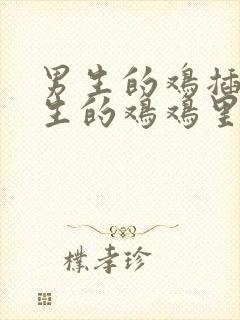 男生的鸡插
生的鸡鸡里
樸孝珍